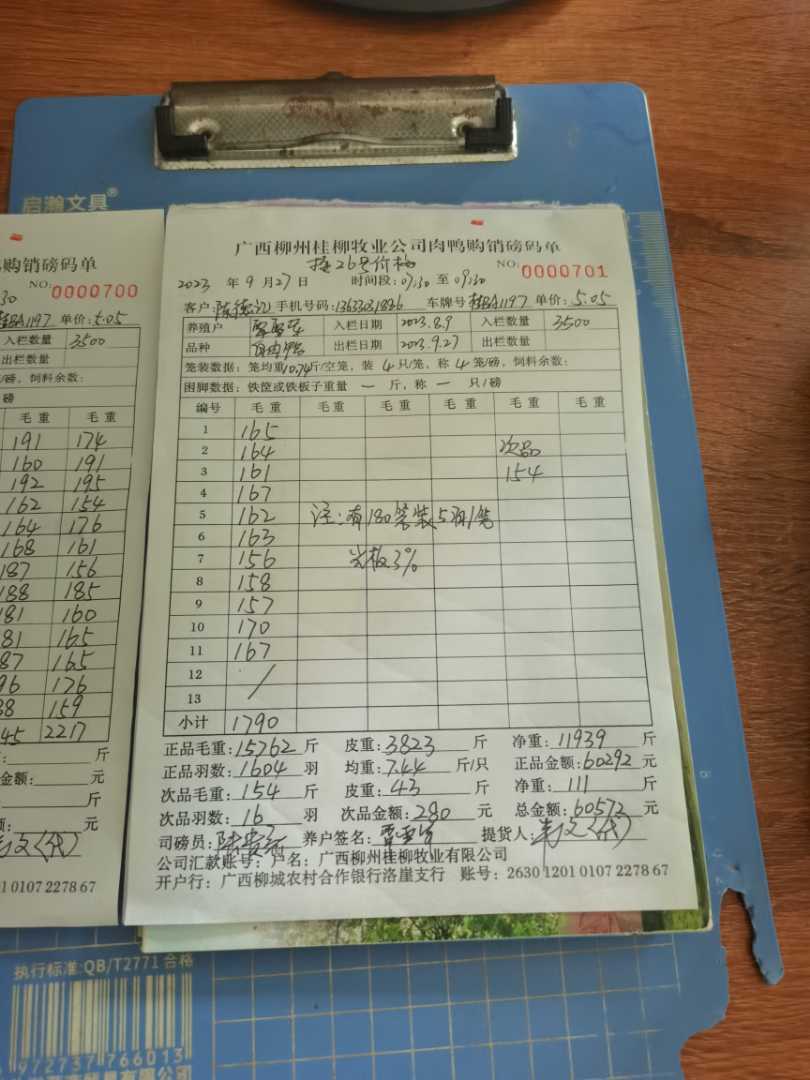 启瀚文具®
购销磅码单
NO:0000700
BA1197 单价:5.05
入栏数量 3500
出栏数量
/磅，饲料余数:
磅
毛重 毛重
191 174
160 191
192 195
162 154
164 176
168 161
187 156
188 185
181 160
81 165
87 165
96 176
88 159
45 2217
斤
金额: 元
斤
元
1 0107 2278 67
广西柳州桂柳牧业公司肉鸭购销磅码单
按26号价格
NO:0000701
2023 年 9 月 27 日 时间段: 07:30 至 09:30
客户 陈德 手机号码: 车牌号 桂BA1197 单价: 5.05
养殖户 入栏日期 2023.8.9 入栏数量 3500
品种 出栏日期 2023.9.27 出栏数量
笼装数据: 笼均重10.74斤/空笼，装 4 只/笼，称 4 笼/磅，饲料余数:
困脚数据: 铁筐或铁板子重量 一 斤，称 一 只/磅
编号 毛重 毛重 毛重 毛重 毛重 毛重
1 165
2 164 次品
3 161 154
4 167
5 162 注:有180笼装5羽/笼
6 163
7 156 光板3%
8 158
9 157
10 170
11 167
12 /
13
小计 1790
正品毛重: 15762 斤 皮重: 3823 斤 净重: 11939 斤
正品羽数: 1604 羽 均重: 7.44 斤/只 正品金额: 60292 元
次品毛重: 154 斤 皮重: 43 斤 净重: 111 斤
次品羽数: 16 羽 次品金额: 280 元 总金额: 60572 元
司磅员: 养户签名: 提货人:
公司汇款账号: 户名: 广西柳州桂柳牧业有限公司
开户行: 广西柳城农村合作银行洛崖支行 账号: 2630 1201 0107 2278 67
执行标准:QB/T2771 合格
972737 766013